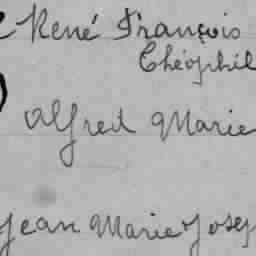 René François
Théophil
Alfred Marie
Jean Marie Josep